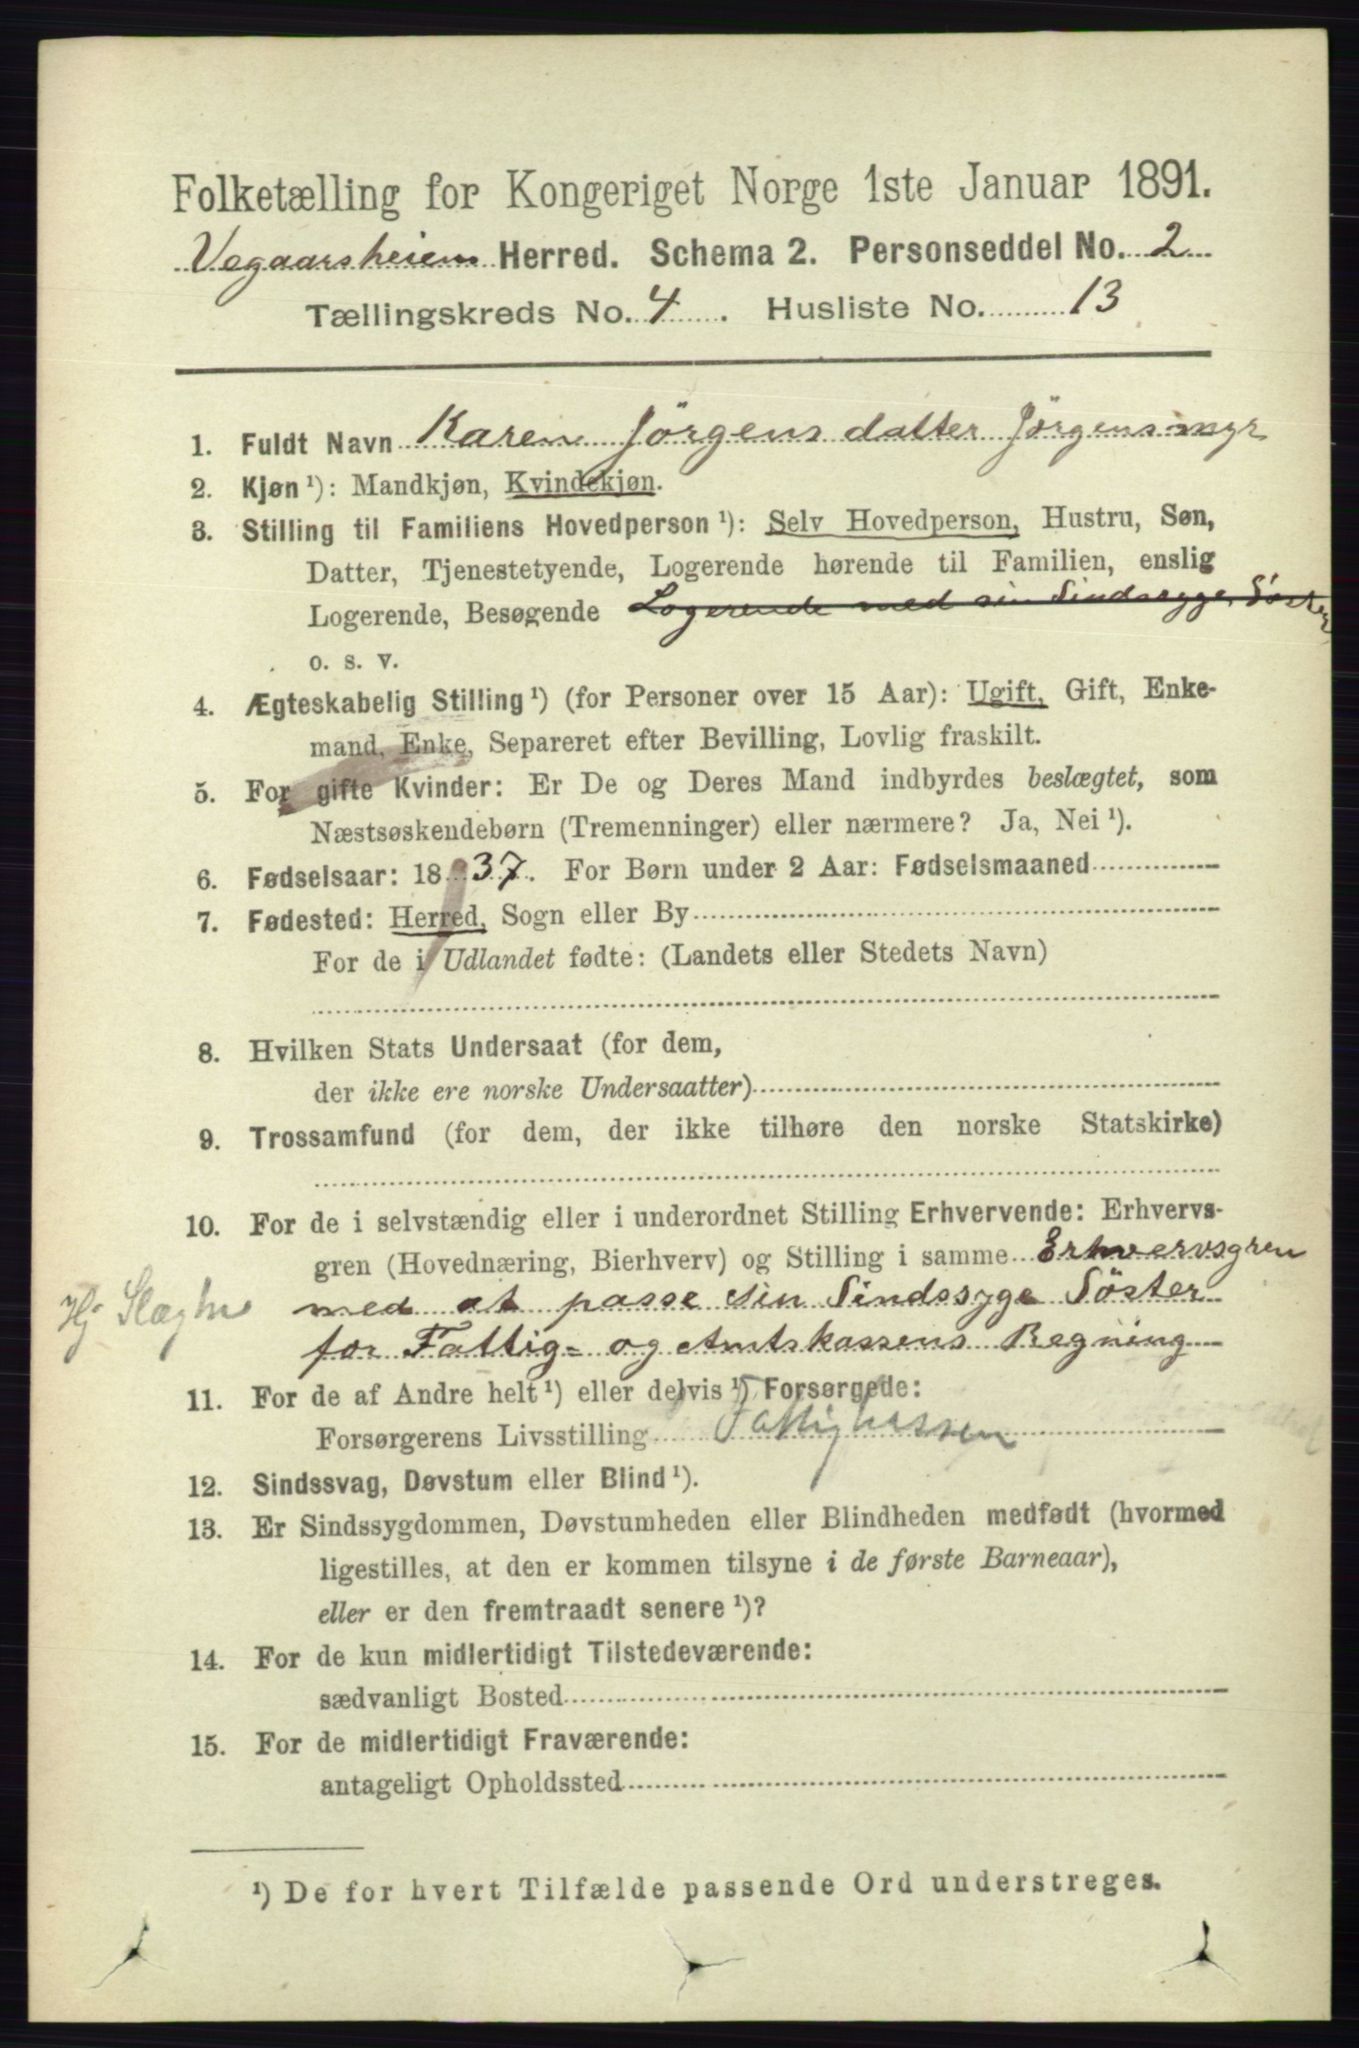 Folketælling for Kongeriget Norge 1ste Januar 1891.
Vegaarsheiens Herred. Schema 2. Personseddel No. 2
Tællingskreds No. 4. Husliste No. 13
1. Fuldt Navn Karen Jörgensdatter Jörgensmyr
2. Kjøn ¹): Mandkjøn, Kvindekjøn.
3. Stilling til Familiens Hovedperson ¹): Selv Hovedperson, Hustru, Søn,
Datter, Tjenestetyende, Logerende hørende til Familien, enslig
Logerende, Besøgende Logerende med sin Sindssyge Söster
o. s. v.
4. Ægteskabelig Stilling ¹) (for Personer over 15 Aar): Ugift, Gift, Enke-
mand, Enke, Separeret efter Bevilling, Lovlig fraskilt.
5. For gifte Kvinder: Er De og Deres Mand indbyrdes beslægtet, som
Næstsøskendebørn (Tremenninger) eller nærmere? Ja, Nei ¹).
6. Fødselsaar: 1837. For Børn under 2 Aar: Fødselsmaaned
7. Fødested: Herred, Sogn eller By
For de i Udlandet fødte: (Landets eller Stedets Navn)
8. Hvilken Stats Undersaat (for dem,
der ikke ere norske Undersaatter)
9. Trossamfund (for dem, der ikke tilhøre den norske Statskirke)
10. For de i selvstændig eller i underordnet Stilling Erhvervende: Erhvervs-
gren (Hovednæring, Bierhverv) og Stilling i samme Erhvervsgren
Hj Slægtn med at passe sin Sindssyge Söster
for Fattig- og Amtskassens Regning
11. For de af Andre helt ¹) eller delvis ¹) Forsørgede:
Forsørgerens Livsstilling Fattigkassen
12. Sindssvag, Døvstum eller Blind ¹).
13. Er Sindssygdommen, Døvstumheden eller Blindheden medfødt (hvormed
ligestilles, at den er kommen tilsyne i de første Barneaar),
eller er den fremtraadt senere ¹)?
14. For de kun midlertidigt Tilstedeværende:
sædvanligt Bosted
15. For de midlertidigt Fraværende:
antageligt Opholdssted
¹) De for hvert Tilfælde passende Ord understreges.